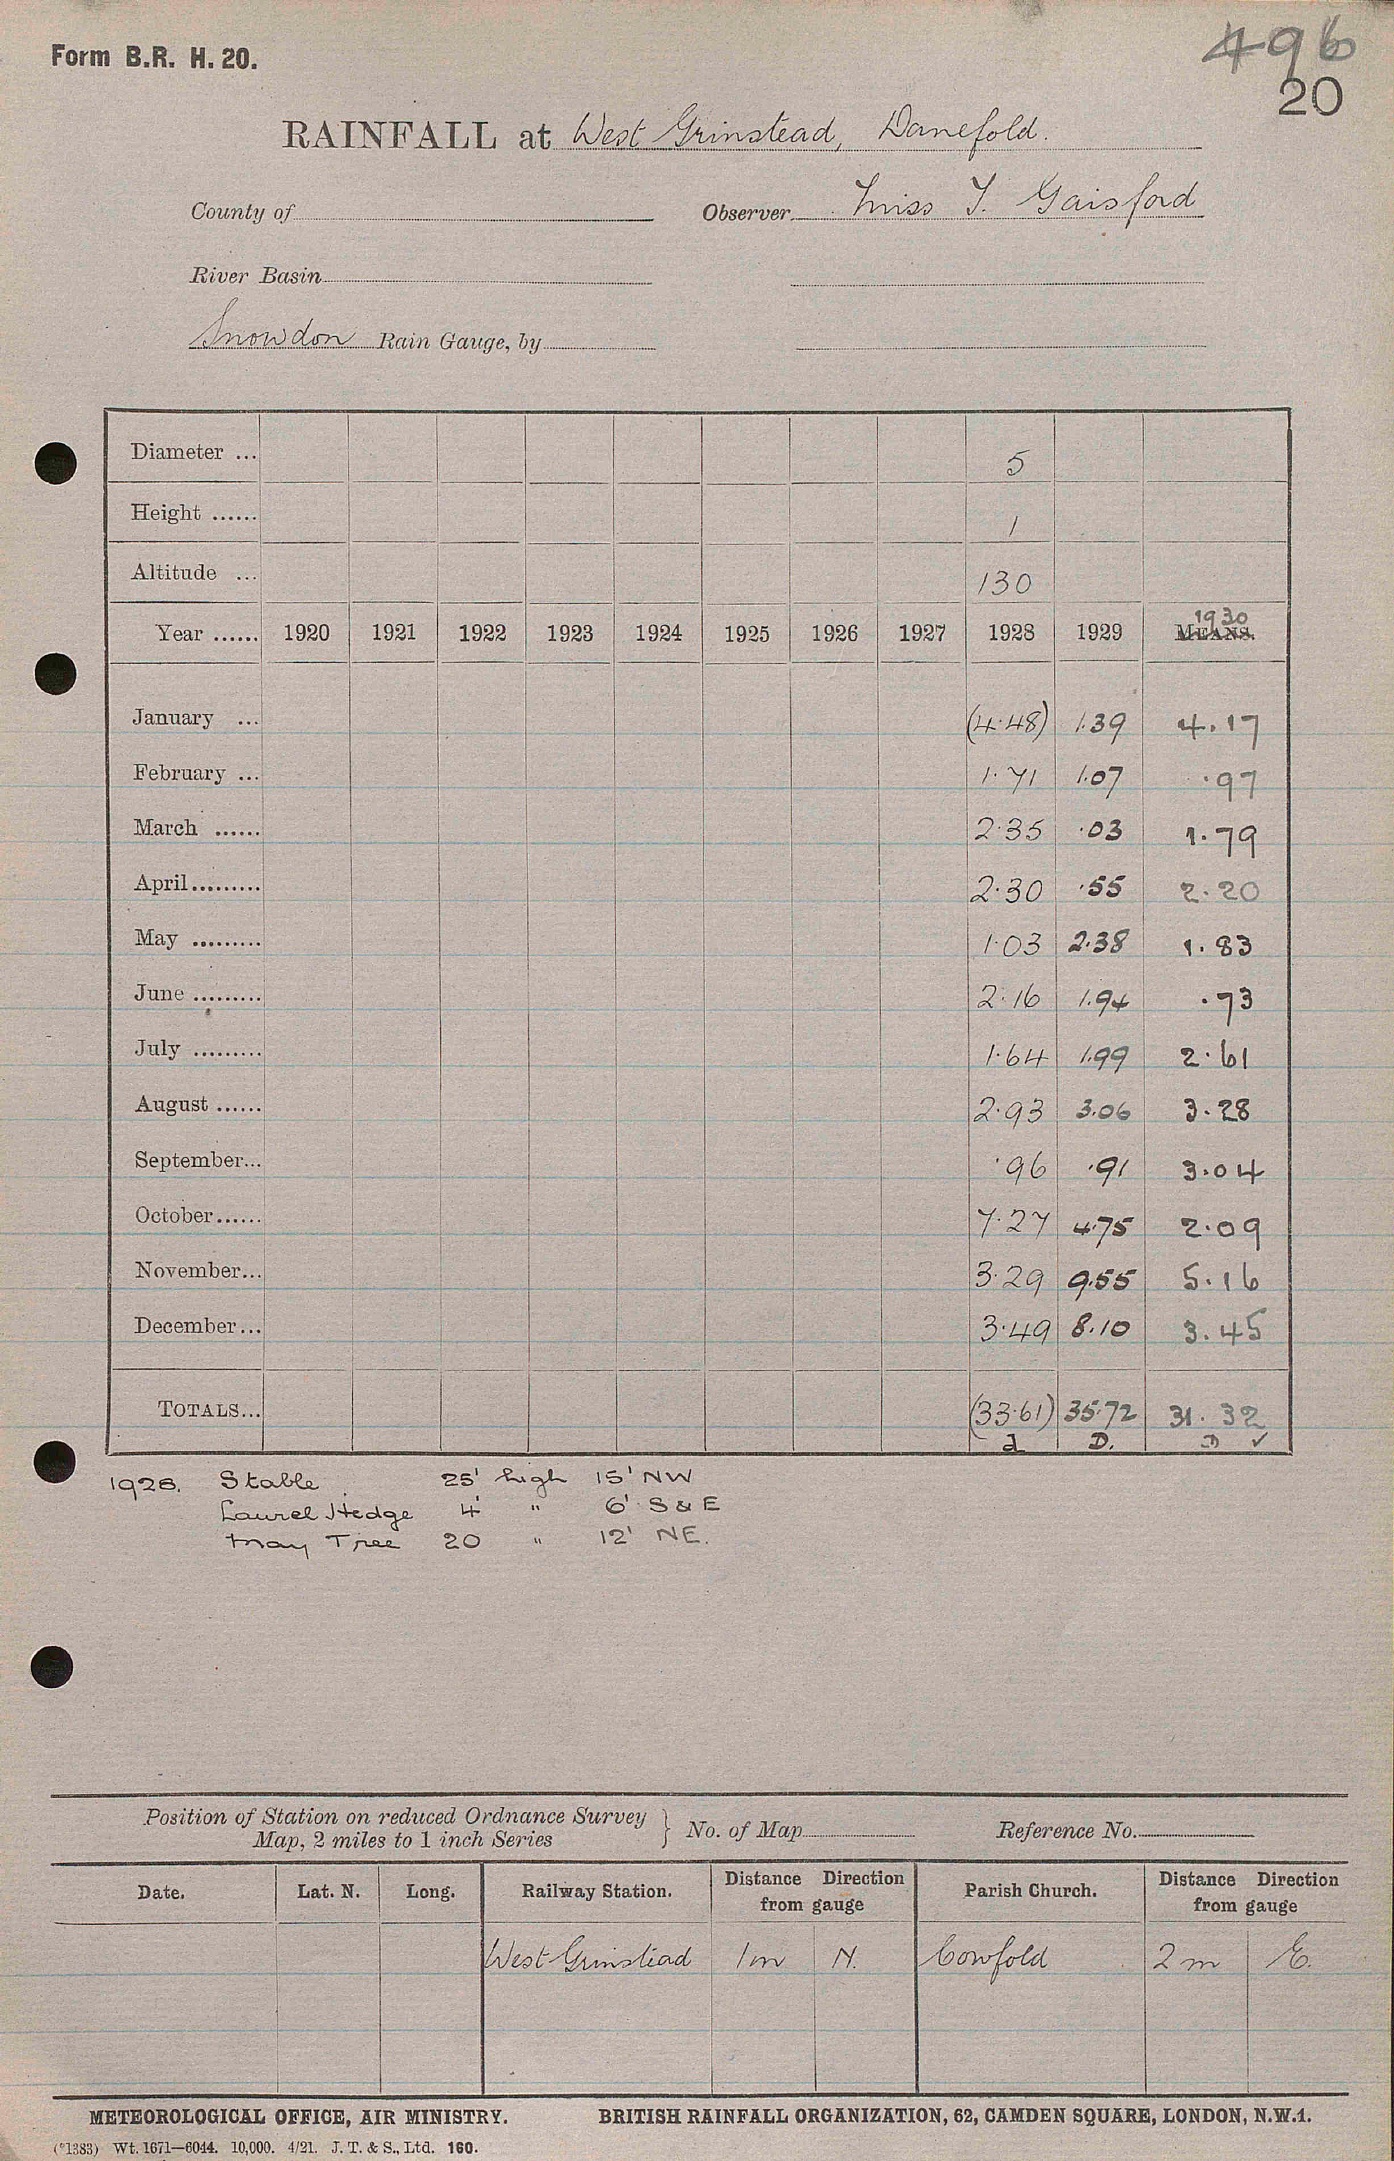 Form B.R. H. 20.
496
20
RAINFALL at West Grinstead, Danefold.
County of Observer Miss T. Gaisford
River Basin
Snowdon Rain Gauge, by
Diameter ... 5
Height ...... 1
Altitude ... 130
1930
Year ...... 1920 1921 1922 1923 1924 1925 1926 1927 1928 1929 MEANS.
January ... (4.48) 1.39 4.17
February ... 1.71 1.07 .97
March ...... 2.35 .03 1.79
April......... 2.30 .55 2.20
May ......... 1.03 2.38 1.83
June ......... 2.16 1.94 .73
July ......... 1.64 1.99 2.61
August ...... 2.93 3.06 3.28
September... .96 .91 3.04
October...... 7.27 4.75 2.09
November... 3.29 9.55 5.16
December... 3.49 8.10 3.45
TOTALS... (33.61) 35.72 31.32
d D. D ✓
1928. Stable 25' high 15' NW
Laurel Hedge 4' " 6' S & E
May Tree 20 " 12' NE.
Position of Station on reduced Ordnance Survey
Map, 2 miles to 1 inch Series } No. of Map Reference No.
Date. Lat. N. Long. Railway Station. Distance Direction from gauge Parish Church. Distance Direction from gauge
West Grinstead 1 m N. Cowfold 2 m E.
METEOROLOGICAL OFFICE, AIR MINISTRY. BRITISH RAINFALL ORGANIZATION, 62, CAMDEN SQUARE, LONDON, N.W.1.
(*1383) Wt. 1671—6044. 10,000. 4/21. J. T. & S., Ltd. 160.